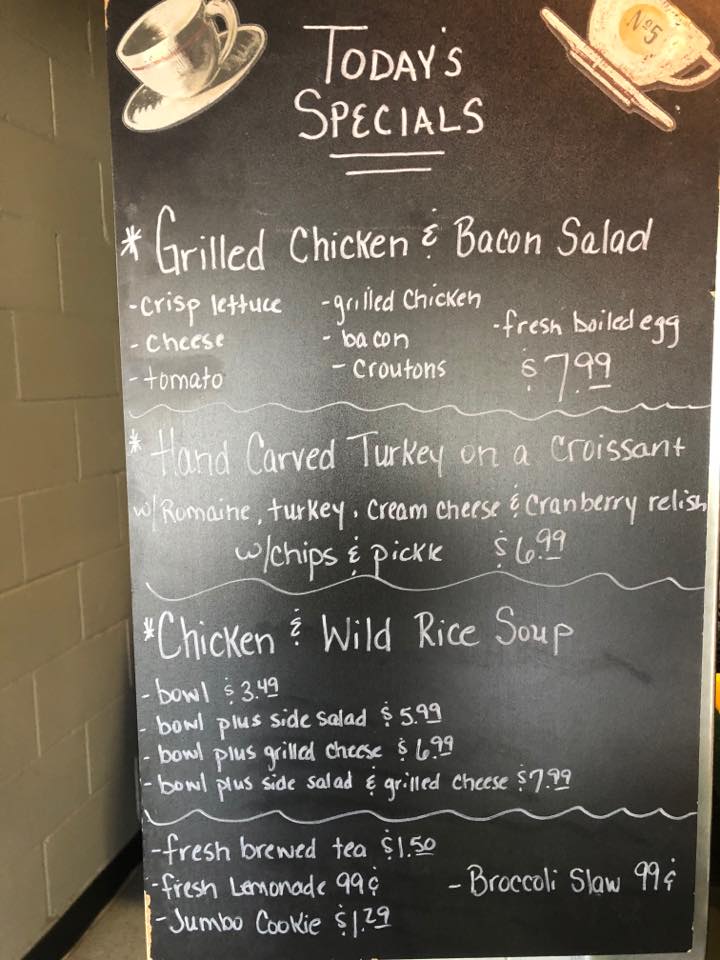 Nº5
TODAY'S
SPECIALS
* Grilled Chicken & Bacon Salad
-crisp lettuce -grilled Chicken
-fresh boiled egg
-cheese -bacon
-tomato -croutons $7.99
* Hand Carved Turkey on a Croissant
w/Romaine, turkey, cream cheese & Cranberry relish
w/chips & pickle $6.99
*Chicken & Wild Rice Soup
-bowl $3.49
-bowl plus side salad $5.99
-bowl plus grilled cheese $6.99
-bowl plus side salad & grilled cheese $7.99
-fresh brewed tea $1.50
-fresh Lemonade 99¢ -Broccoli Slaw 99¢
-Jumbo Cookie $1.29